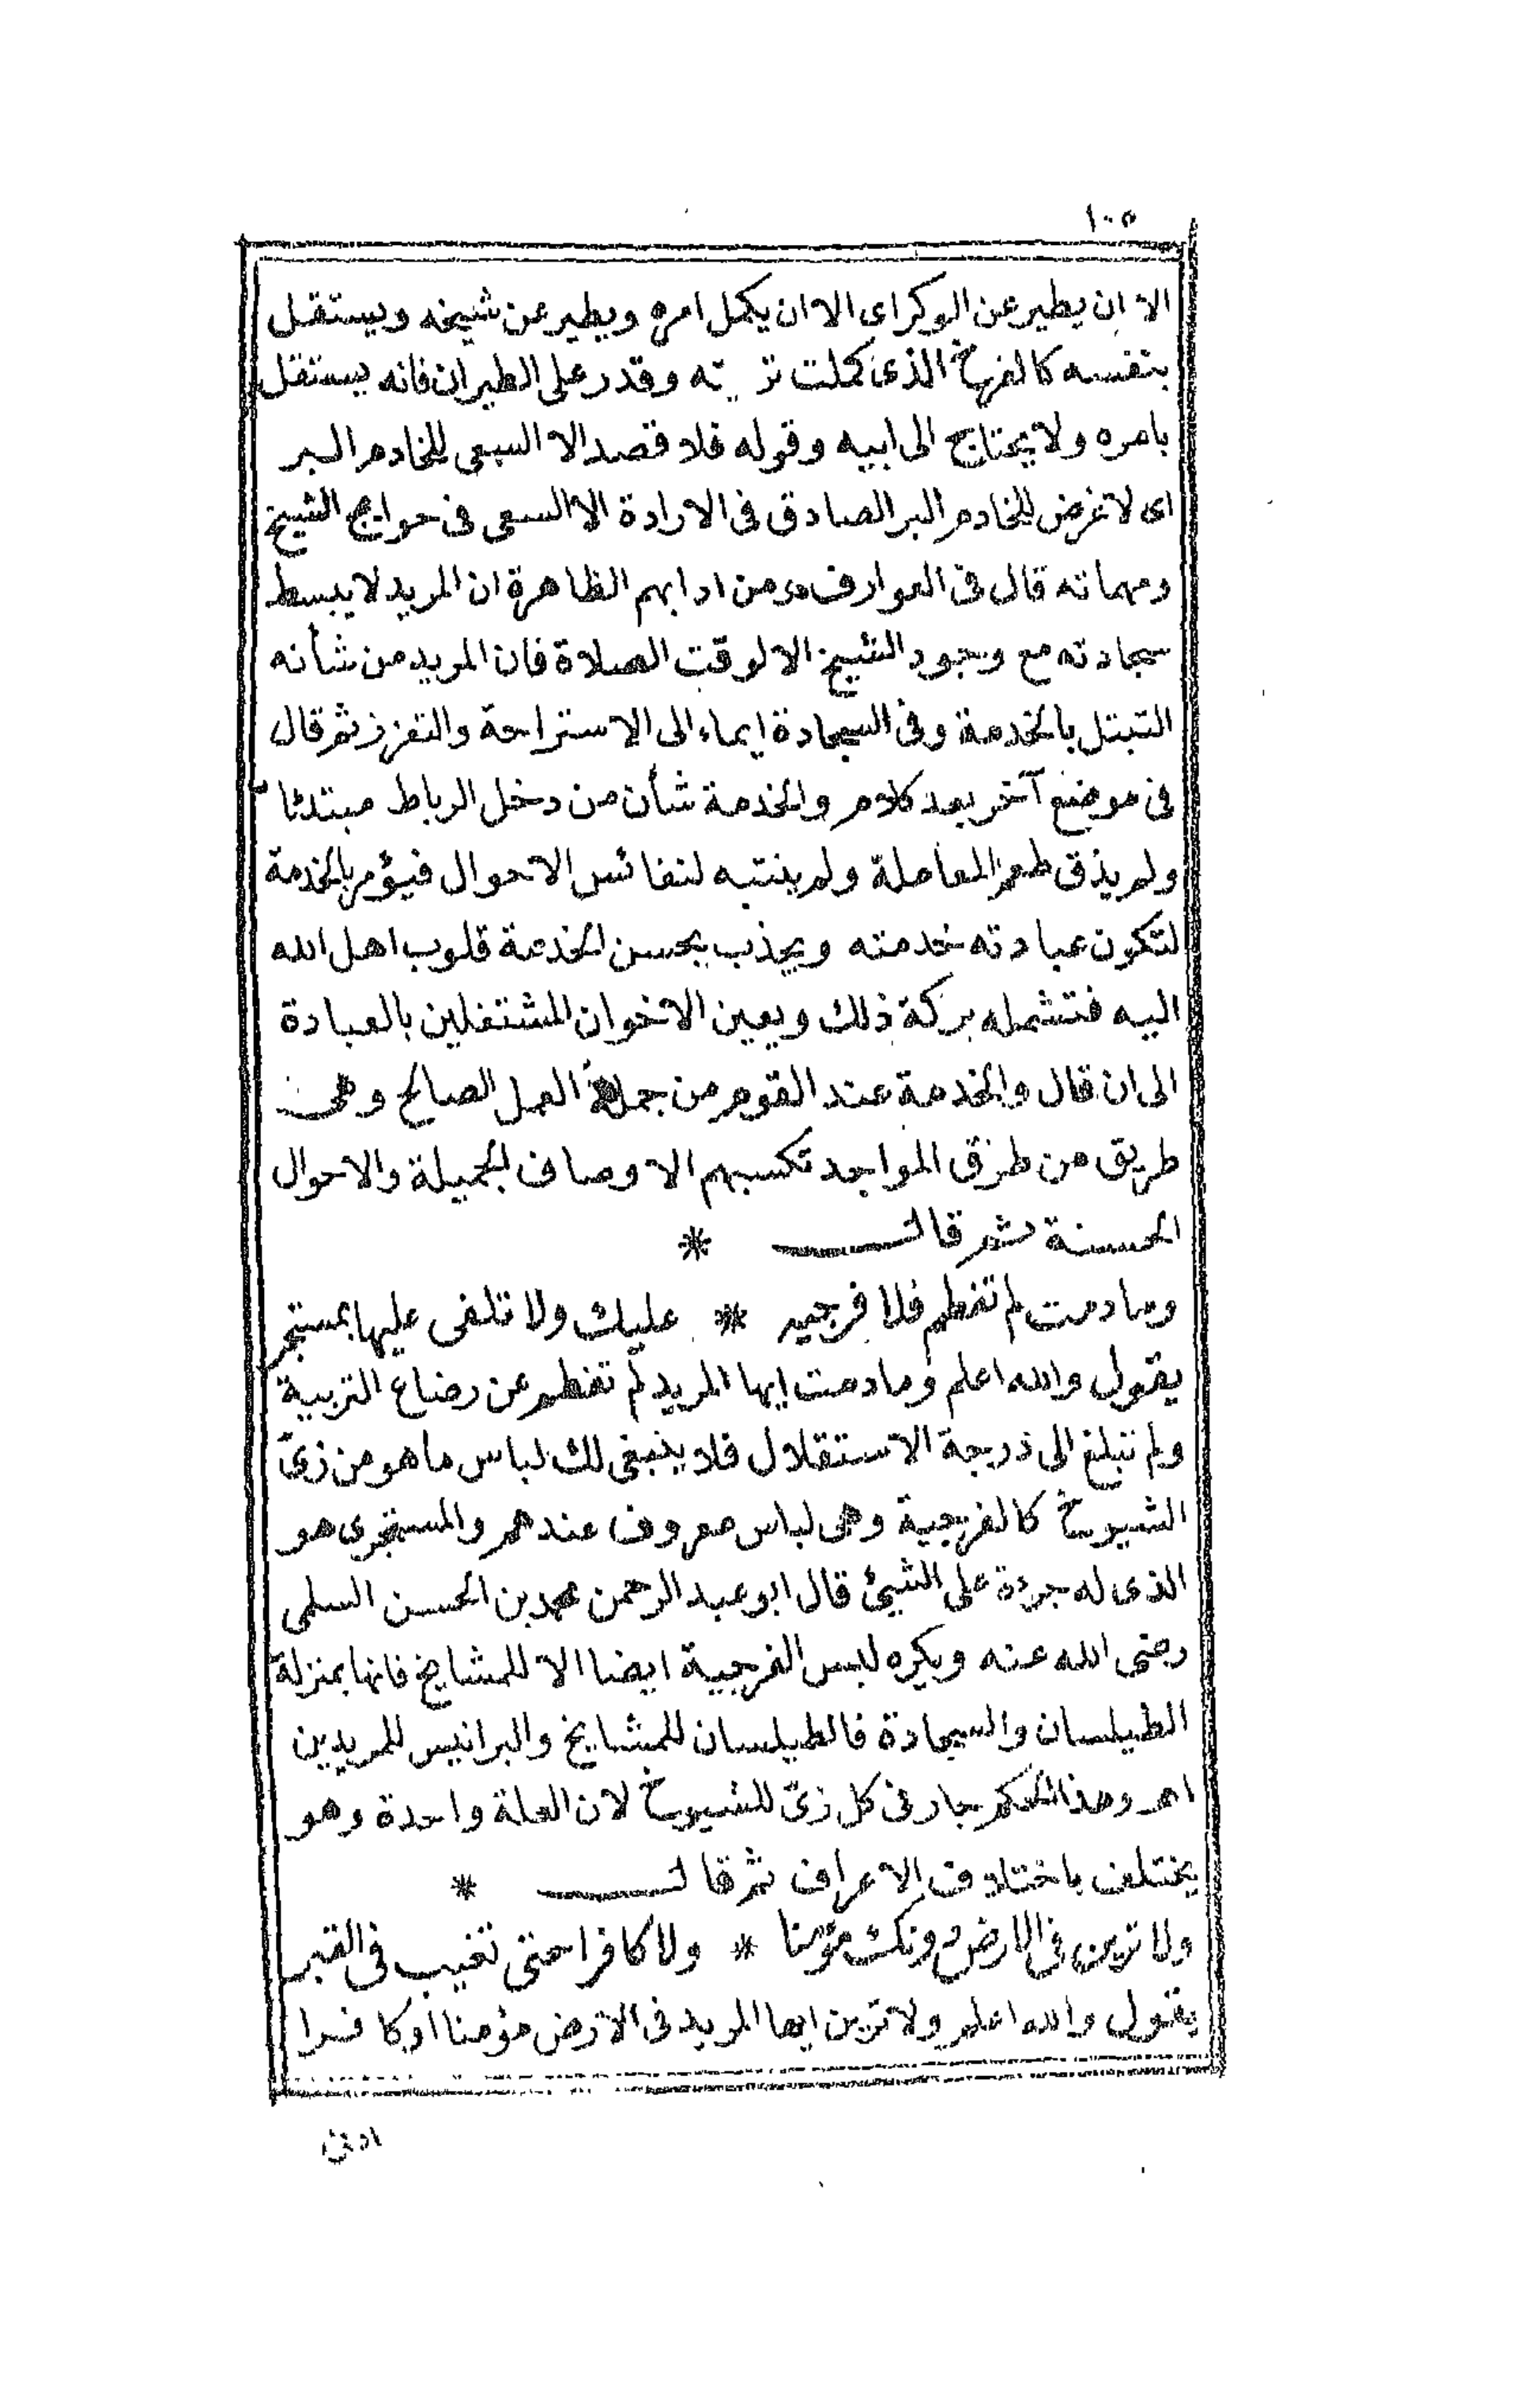 ١٠٥
الا ان يطير عن الوكر اى الا ان يكمل امره ويطير عن شيخه ويستقل
بنفسه كالفرخ الذى كملت تربيته وقدر على الطيران فانه يستقل
بامره ولا يحتاج الى ابيه وقوله فلا قصد الا السعى للخادم البر
اى لا غرض للخادم البر الصادق فى الارادة الا السعى فى حوايج الشيخ
ومهماته قال فى العوارف ومن ادابهم الظاهرة ان المريد لا يبسط
سجادته مع وجود الشيخ الا لوقت الصلاة فان المريد من شأنه
التبتل بالخدمة وفى السجادة ايماء الى الاستراحة والتعزز ثم قال
فى موضع آخر بعد كلام والخدمة شأن من دخل الرباط مبتدئا
ولم يذق طعم المعاملة ولم ينتبه لنفائس الاحوال فيؤمر بالخدمة
لتكون عبادته خدمته ويجذب بحسن الخدمة قلوب اهل الله
اليه فتشمله بركة ذلك ويعين الاخوان المشتغلين بالعبادة
الى ان قال والخدمة عند القوم من جملة العمل الصالح وهى
طريق من طرق المواجد تكسبهم الاوصاف الجميلة والاحوال
الحسنة ثم قال *
وما دمت لم تفطم فلا فرجية * عليك ولا تلفى عليها بمستجر
يقول والله اعلم وما دمت ايها المريد لم تفطم عن رضاع التربية
ولم تبلغ الى درجة الاستقلال فلا ينبغى لك لباس ما هو من زىّ
الشيوخ كالفرجية وهى لباس معروف عندهم والمستجرى هو
الذى له جرءة على الشيئ قال ابو عبد الرحمن محمد بن الحسن السلمى
رضى الله عنه ويكره لبس الفرجية ايضا الا للمشايخ فانها بمنزلة
الطيلسان والسجادة فالطيلسان للمشايخ والبرانيس للمريدين
اهـ وهذا الحكم جار فى كل زىّ للشيوخ لان العلة واحدة وهو
يختلف باختلاف الاعراف ثم قال *
ولا ترين فى الارض دونك مؤمنا * ولا كافرا حتى تغيب فى القبر
يقول والله اعلم ولا ترين ايها المريد فى الارض مؤمنا او كافرا
ادنى